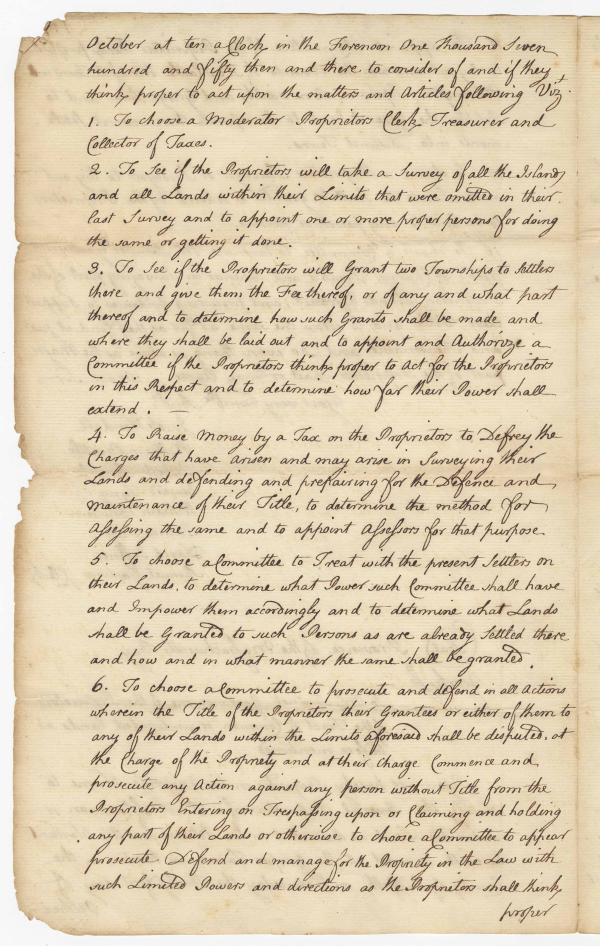 October at ten a Clock in the Forenoon One Thousand Seven
hundred and fifty then and there to consider of and if they
think proper to act upon the matters and Articles following Vizt.
1. To choose a Moderator Proprietors Clerk Treasurer and
Collector of Taxes.
2. To See if the Proprietors will take a Survey of all the Islands
and all Lands within their Limits that were omitted in their
last Survey and to appoint one or more proper persons for doing
the same or getting it done.
3. To See if the Proprietors will Grant two Townships to Settlers
there and give them the Fee thereof, or of any and what part
thereof and to determine how such Grants shall be made and
where they shall be laid out and to appoint and Authorize a
Committee if the Proprietors think proper to Act for the Proprietors
in this Respect and to determine how far their Power shall
extend. —
4. To Raise Money by a Tax on the Proprietors to Defrey the
Charges that have arisen and may arise in Surveying their
Lands and defending and prepairing for the Defence and
maintenance of their Title, to determine the method for
Assessing the same and to appoint Assessors for that purpose
5. To choose a Committee to Treat with the present Settlers on
their Lands, to determine what Power such Committee shall have
and Impower them accordingly and to determine what Lands
shall be Granted to such Persons as are already Settled there
and how and in what manner the same shall be granted.
6. To choose a Committee to prosecute and defend in all Actions
wherein the Title of the Proprietors their Grantees or either of them to
any of their Lands within the Limits aforesaid shall be disputed, at
the Charge of the Propriety and at their Charge Commence and
prosecute any Action against any person without Title from the
Proprietors Entering on Trespassing upon or Claiming and holding
any part of their Lands or otherwise to choose a Committee to appear
prosecute Defend and manage for the Propriety in the Law with
such Limited Powers and directions as the Proprietors shall think
proper